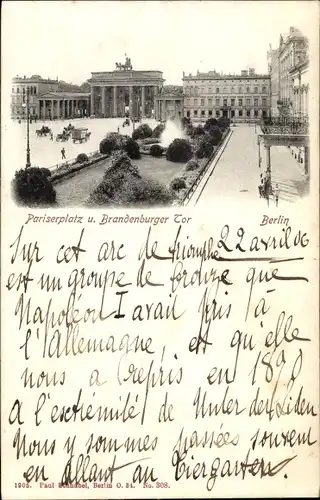 Pariserplatz u. Brandenburger Tor
Berlin
Sur cet arc de triomphe 22 avril 06
est un groupe de bronze que
Napoléon I avait pris à
l'Allemagne, et qu'elle
nous a repris en 1870
A l'extrémité de Unter den Linden
Nous y sommes passées souvent
en allant au Tiergarten.
1905. Paul Berlin O. 34. No. 308.